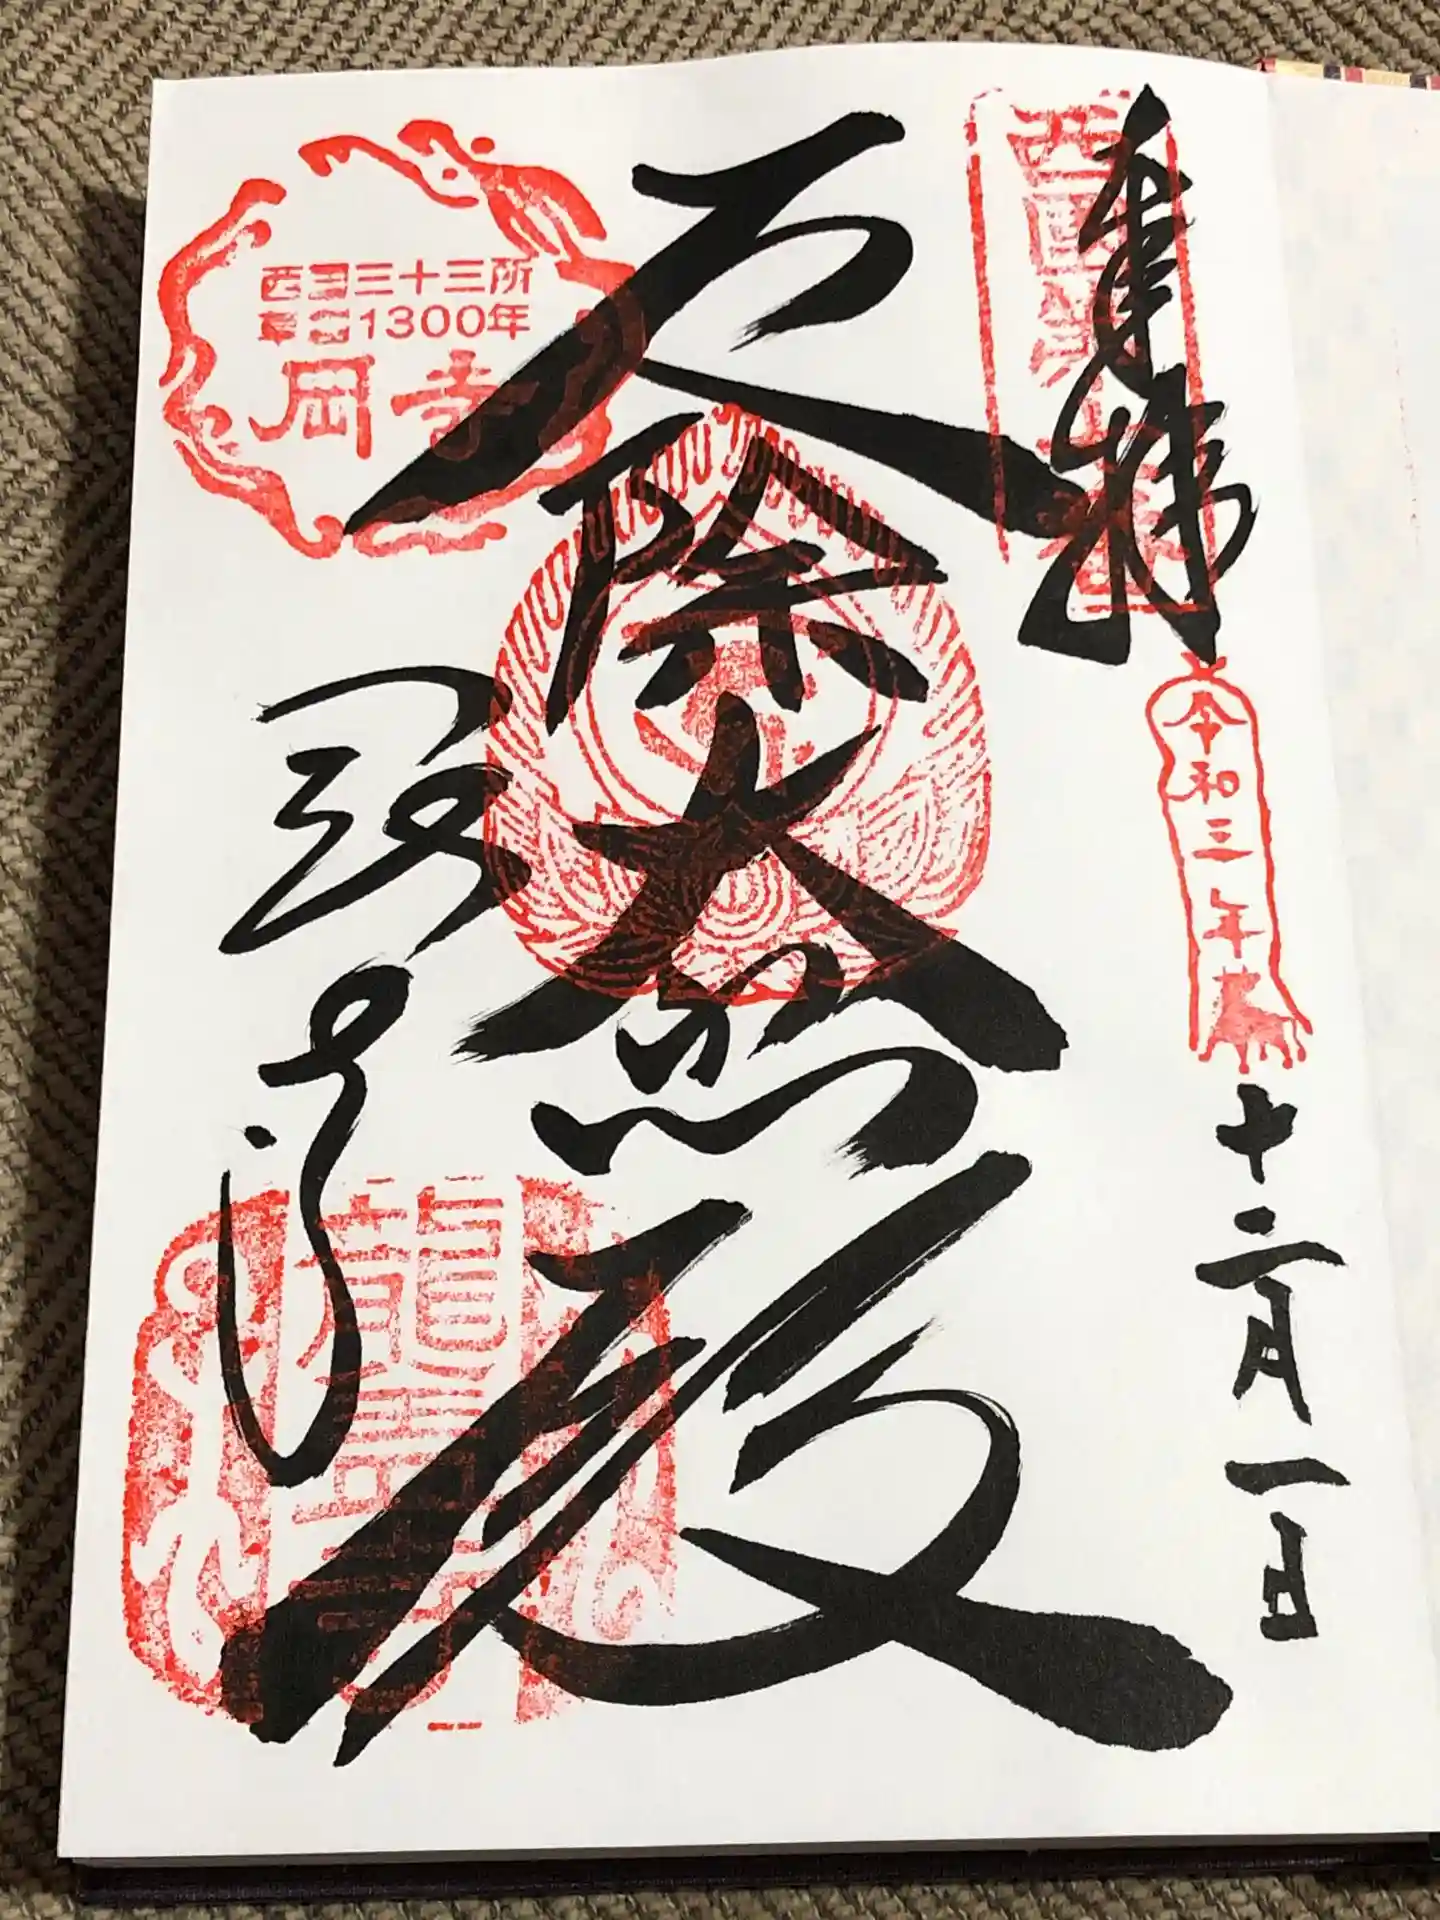 奉拝
西国第七番
令和三年
十二月一日
厄除大悲殿
岡寺
西国三十三所
草創1300年
岡寺
龍蓋寺